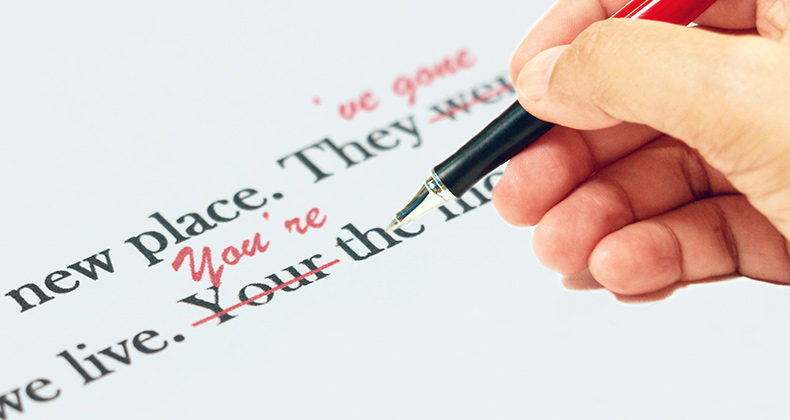 've gone
new place. They
You're
we live. Your the